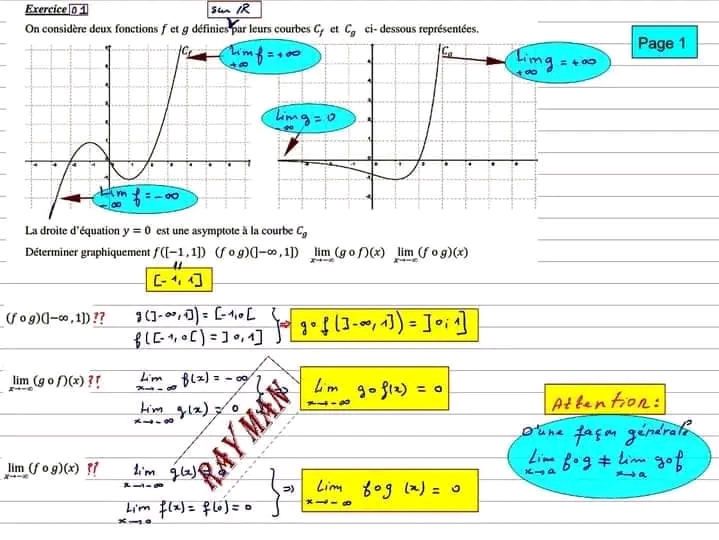 Exercice 01
sur IR
On considère deux fonctions f et g définies par leurs courbes C_f et C_g ci- dessous représentées.
Page 1
C_f
Lim f = +∞
+∞
C_g
Lim g = +∞
+∞
Lim g = 0
-∞
Lim f = -∞
-∞
La droite d'équation y = 0 est une asymptote à la courbe C_g
Déterminer graphiquement f([-1,1]) (f o g)(]-∞,1]) lim x→-∞ (g o f)(x) lim x→-∞ (f o g)(x)
[-1, 1]
(f o g)(]-∞,1]) ?? g(]-∞,1]) = [-1,0[
f([-1,0[) = ]0,1]
⇒ gof(]-∞,1]) = ]0;1]
lim x→-∞ (g o f)(x) ?? Lim x→-∞ f(x) = -∞
Lim x→-∞ g(x) = 0
⇒ Lim x→-∞ gof(x) = 0
RAYMAN
Attention:
D'une façon générale
Lim x→a fog ≠ Lim x→a gof
lim x→-∞ (f o g)(x) ?? Lim x→-∞ g(x) = 0
Lim x→0 f(x) = f(0) = 0
⇒ Lim x→-∞ fog(x) = 0